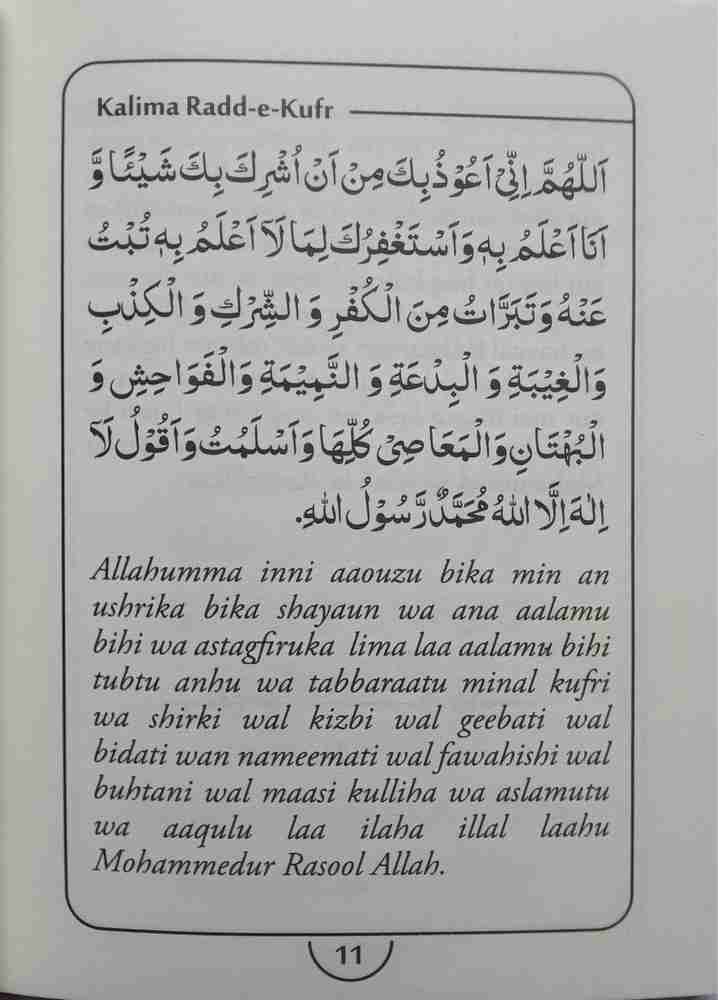 Kalima Radd-e-Kufr
اَللّٰهُمَّ اِنِّيْ اَعُوْذُ بِكَ مِنْ اَنْ اُشْرِكَ بِكَ شَيْئًا وَّ
اَنَا اَعْلَمُ بِهٖ وَاَسْتَغْفِرُكَ لِمَا لَآ اَعْلَمُ بِهٖ تُبْتُ
عَنْهُ وَتَبَرَّاتُ مِنَ الْكُفْرِ وَ الشِّرْكِ وَ الْكِذْبِ
وَالْغِيْبَةِ وَ الْبِدْعَةِ وَ النَّمِيْمَةِ وَالْفَوَاحِشِ وَ
الْبُهْتَانِ وَالْمَعَاصِيْ كُلِّهَا وَاَسْلَمْتُ وَاَقُوْلُ لَآ
اِلٰهَ اِلَّا اللّٰهُ مُحَمَّدٌ رَّسُوْلُ اللّٰهِ.
Allahumma inni aaouzu bika min an
ushrika bika shayaun wa ana aalamu
bihi wa astagfiruka lima laa aalamu bihi
tubtu anhu wa tabbaraatu minal kufri
wa shirki wal kizbi wal geebati wal
bidati wan nameemati wal fawahishi wal
buhtani wal maasi kulliha wa aslamutu
wa aaqulu laa ilaha illal laahu
Mohammedur Rasool Allah.
11